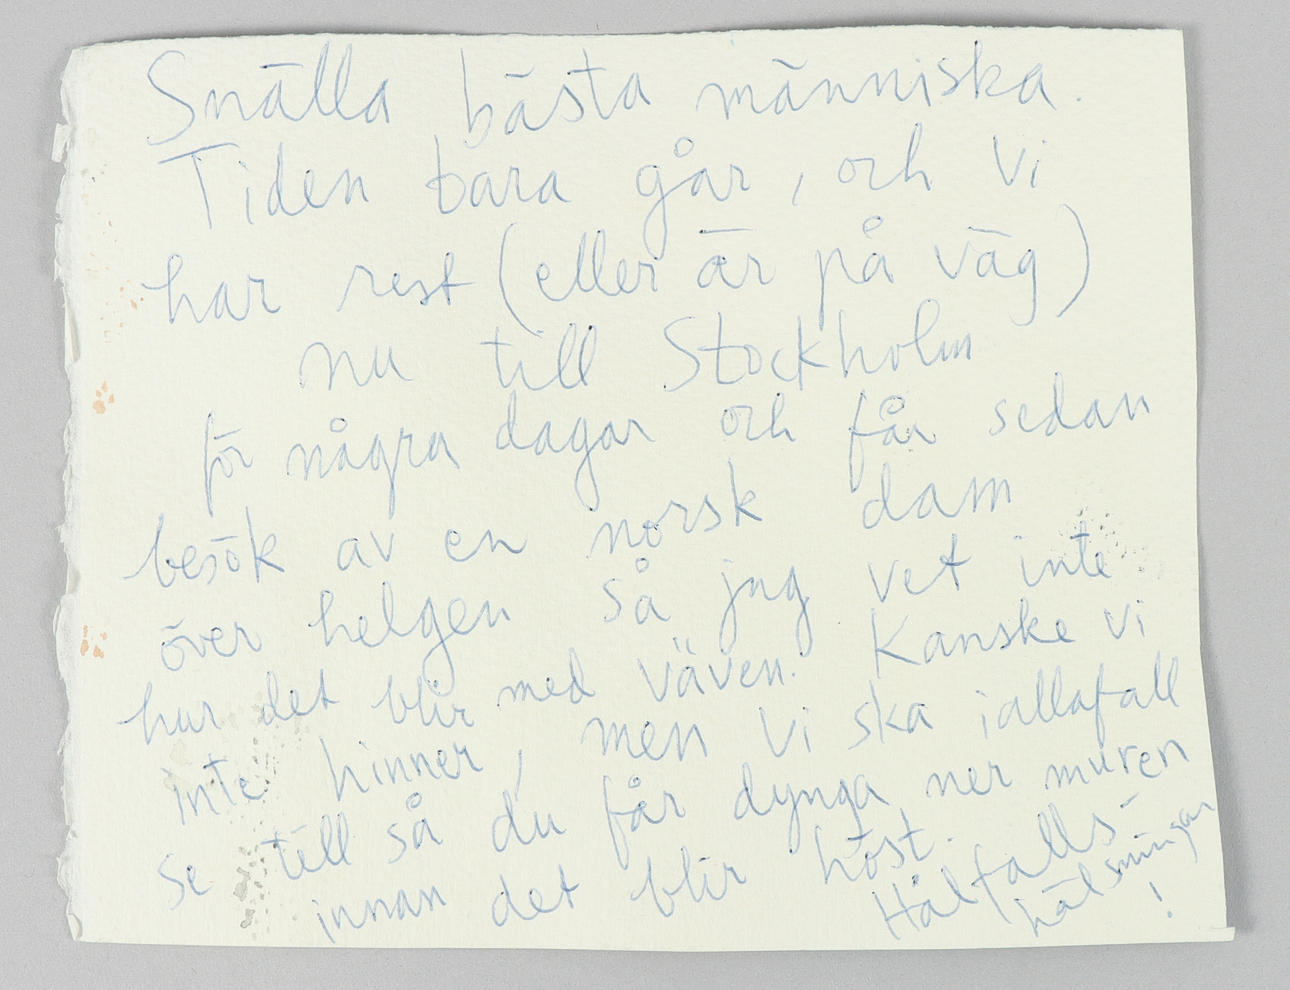 Snälla bästa människa.
Tiden bara går, och vi
har rest (eller är på väg)
nu till Stockholm
för några dagar och får sedan
besök av en norsk dam
över helgen så jag vet inte
hur det blir med väven. Kanske vi
inte hinner, men vi ska iallafall
se till så du får dynga ner muren
innan det blir höst.
Hålfalls-
hälsningar
!